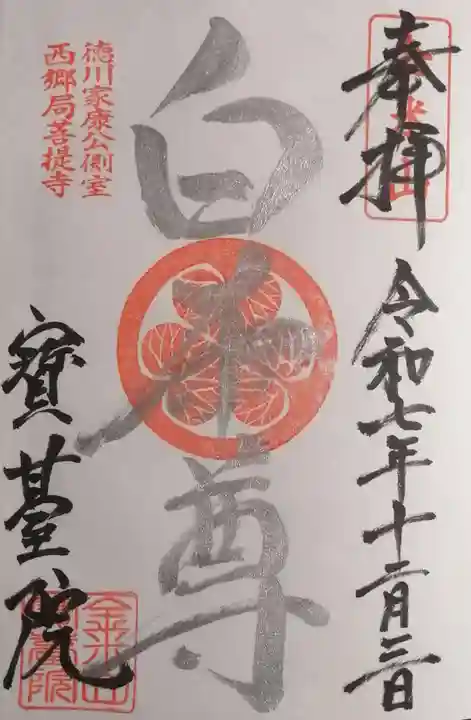 奉拝
令和七年十二月三日
白本尊
徳川家康公側室
西郷局菩提寺
寳臺院
金米山
寳臺院